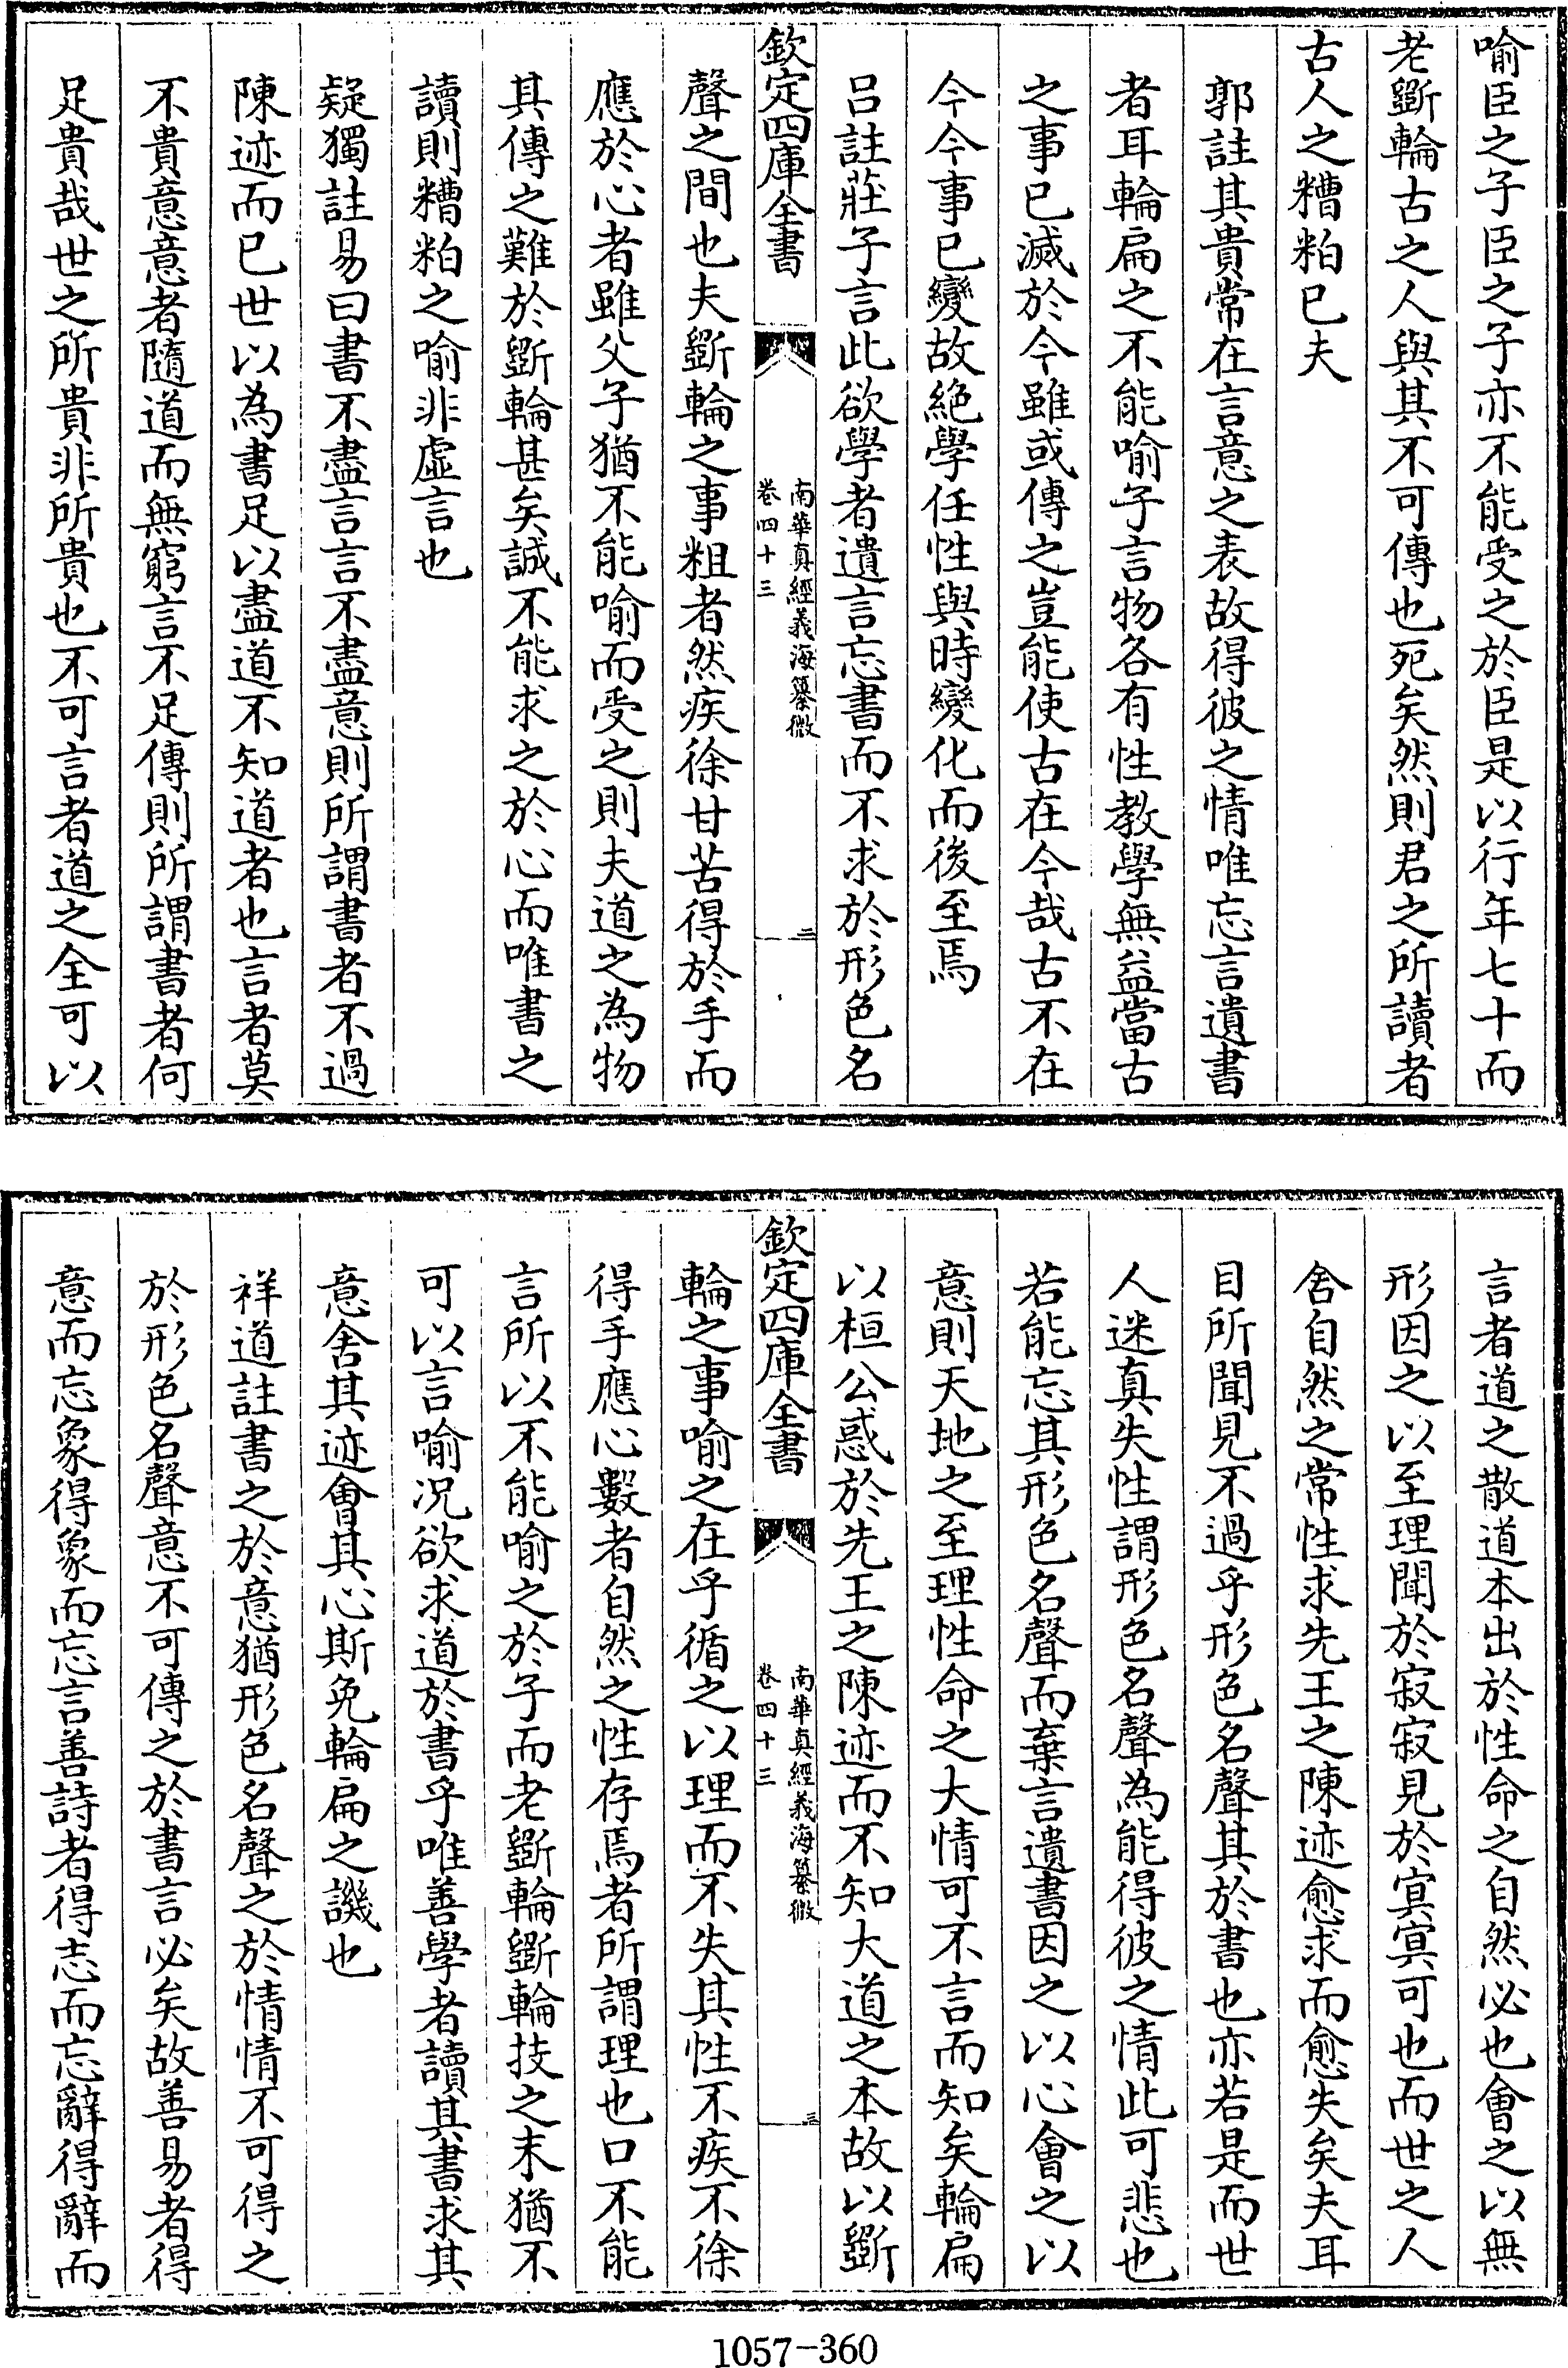 喻臣之子臣之子亦不能受之於臣是以行年七十而
老斵輪古之人與其不可傳也死矣然則君之所讀者
古人之糟粕已夫
郭註其貴常在言意之表故得彼之情唯忘言遺書
者耳輪扁之不能喻子言物各有性教學無益當古
之事已滅於今雖或傳之豈能使古在今哉古不在
今今事已變故絶學任性與時變化而後至焉
吕註莊子言此欲學者遺言忘書而不求於形色名
欽定四庫全書
南華真經義海纂微
卷四十三
二
聲之間也夫斵輪之事粗者然疾徐甘苦得於手而
應於心者雖父子猶不能喻而受之則夫道之為物
其傳之難於斵輪甚矣誠不能求之於心而唯書之
讀則糟粕之喻非虛言也
疑獨註易曰書不盡言言不盡意則所謂書者不過
陳迹而已世以為書足以盡道不知道者也言者莫
不貴意意者隨道而無窮言不足傳則所謂書者何
足貴哉世之所貴非所貴也不可言者道之全可以
言者道之散道本出於性命之自然必也會之以無
形因之以至理聞於寂寂見於冥冥可也而世之人
舍自然之常性求先王之陳迹愈求而愈失矣夫耳
目所聞見不過乎形色名聲其於書也亦若是而世
人迷真失性謂形色名聲為能得彼之情此可悲也
若能忘其形色名聲而棄言遺書因之以心會之以
意則天地之至理性命之大情可不言而知矣輪扁
以桓公惑於先王之陳迹而不知大道之本故以斵
欽定四庫全書
南華真經義海纂微
卷四十三
三
輪之事喻之在乎循之以理而不失其性不疾不徐
得手應心數者自然之性存焉者所謂理也口不能
言所以不能喻之於子而老斵輪斵輪技之末猶不
可以言喻況欲求道於書乎唯善學者讀其書求其
意舍其迹會其心斯免輪扁之譏也
祥道註書之於意猶形色名聲之於情情不可得之
於形色名聲意不可傳之於書言必矣故善易者得
意而忘象得象而忘言善詩者得志而忘辭得辭而
1057-360